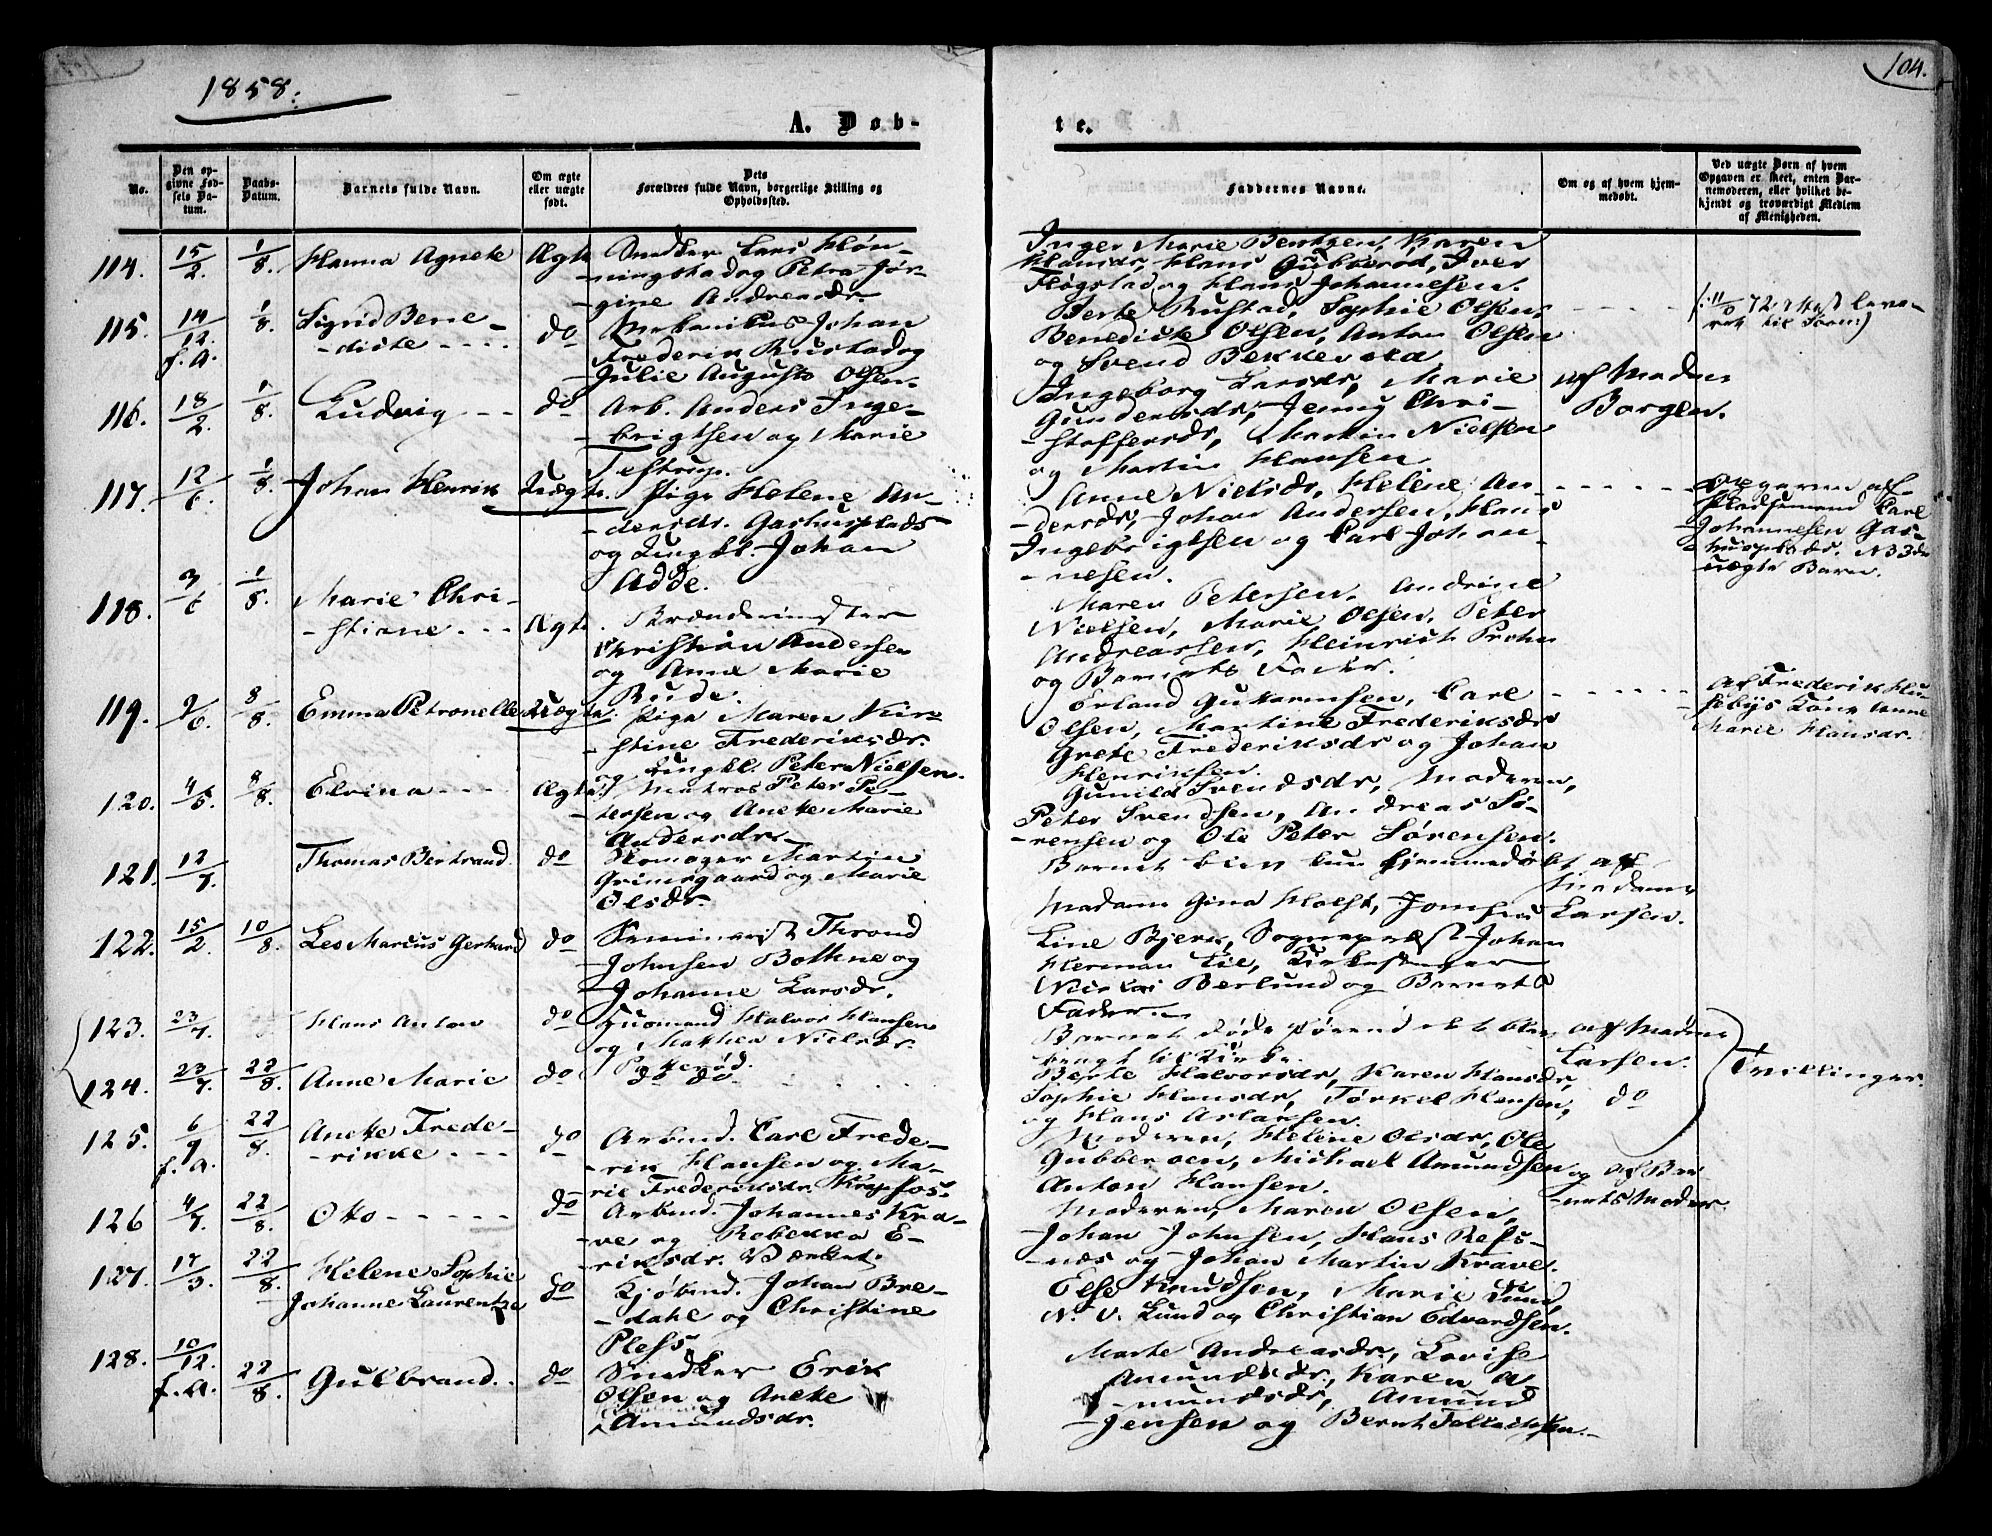 1858.
104.
A. Døb-
te.
No.
Den op-
givne Fød-
sels Da-
tum.
Daabs-
Datum.
Barnets fulde Navn.
Om ægte
eller uægte
født.
Dets
Forældres fulde Navn, borgerlige Stilling og
Opholdssted.
Faddernes Navne.
Om og af hvem hjem-
medøbt.
Ved uægte Børn af hvem
Opgaven er skeet, enten Bar-
nemoderen, eller hvilket be-
kjendt og troværdigt Medlem
af Menigheden.
114. 15/2. 1/8. Hanna Agnete Ægte
Snedker Lars Høn-
ningstad og Petra Jør-
gine Andreasdr.
Inger Marie Berntzen, Karen
Hansdr, Hans Gubberød, Iver
Fløgstad og Hans Johannesen.
115. 14/12. f.A. 1/8. Sigrid Bene-
dicte do
Mekanikus Johan
Frederik Rustad og
Julie Augusta Olsen.
Berte Rustad, Sophie Olsen,
Benedicte Olsen, Anton Olsen
og Svend Bekkevold
72 Attest leve-
ret til
116. 18/2. 1/8. Ludvig do
Arb. Anders Inge-
brigtsen og Marie
Testrup.
Ingeborg Larsdr, Marie
Gundersdr, Jenny Chri-
stoffersdr, Martin Nielsen
og Martin Hansen
af Madm
Borgen.
117. 12/6. 1/8. Johan Henrik Uægte.
Pige Helene An-
dersdr. Gashusplads
og Ungkl. Johan
Adde.
Anne Nielsdr, Helene An-
dersdr, Johan Andersen, Hans
Ingebrigtsen og Carl Johan-
nesen.
Opgaven af
Pladsemand Carl
Johannesen Gas-
husplads. NB 3de
uægte Barn.
118. 3/6 1/8. Marie Chri-
stiane Ægte.
Brænderimster
Christian Andersen
og Anne Marie
Rude.
Maren Petersen, Andrine
Nielsen, Marie Olsen, Peter
Andreassen, Heinrich Prohn
og Barnets Fader.
119. 9/6. 8/8. Emma Petronelle Uægte.
Pige Maren Kir-
stine Frederiksdr.
og Ungkl. Peter Nielsen.
Erland Guttormsen, Carl
Olsen, Martine Frederiksdr
Grete Frederiksdr og Johan
Henriksen.
Af Frederik Hu-
sebys Kone Anne
Marie Hansdr.
120. 4/5. 8/8. Elvina Ægte
Matros Peter Pe-
tersen og Anette Marie
Andersdr.
Gunild Svendsdr, Moderen,
Peter Svendsen, Andreas Sø-
rensen og Ole Peter Sørensen.
121. 12/7. Thomas Bertrand do
Skomager Martin
Grimsgaard og Marie
Olsdr.
Barnet blev kun hjemmedøbt af
Madame
Larsen.
122. 15/2 10/8. Leo Marcus Gerhard do
Seminarist Thrond
Johnsen Bothne og
Johanne Larsdr.
Madam Gina Holst, Jomfru
Line Bjerk, Sognepræst Johan
Herman Lie, Kirkesanger
Nicolai Berlund og Barnets
Fader.
123. 23/7. Hans Anton do
Huusmand Halvor Hansen
og Mathea Nielsdr.
Putterød.
Barnet døde førend det blev
bragt til Kirke.
af Madme
Larsen.
Tvillinger.
124. 23/7. 22/8. Anne Marie do
do do
Berte Halvorsdr, Karen Hansdr,
Sophie Hansdr, Torkel Hansen,
og Hans Aslaksen.
do
125. 6/9 f.A. 22/8. Anette Frede-
rikke do
Arbmd. Carl Frede-
rik Hansen og Ma-
rie Frederiksdr. Krapfos.
Moderen, Helene Olsdr, Ole
Gubberoen, Michael Amundsen og
Anton Hansen.
af Bar
nets Moder.
126 4/7. 22/8. Otto do
Arbmd. Johannes Kra-
ve og Robekka E-
riksdr. Værlent.
Moderen, Maren Olsen,
Johan Johnsen, Hans Refs-
næs og Johan Martin Krave.
127. 17/3. 22/8. Helene Sophie
Johanne Laurentze do
Kjøbmd. Johan Bre-
dahl og Christine
Pless.
Else Knudsen, Marie Lund
N. V. Lund og Christian Edvardsen.
128. 10/12. f.A. 22/8. Gulbrand. do
Snedker Erik
Olsen og Anette
Amundsdr.
Marte Andreasdr, Lovise
Amundsdr, Karen A-
mundsdr, Amund
Jensen og Bernt